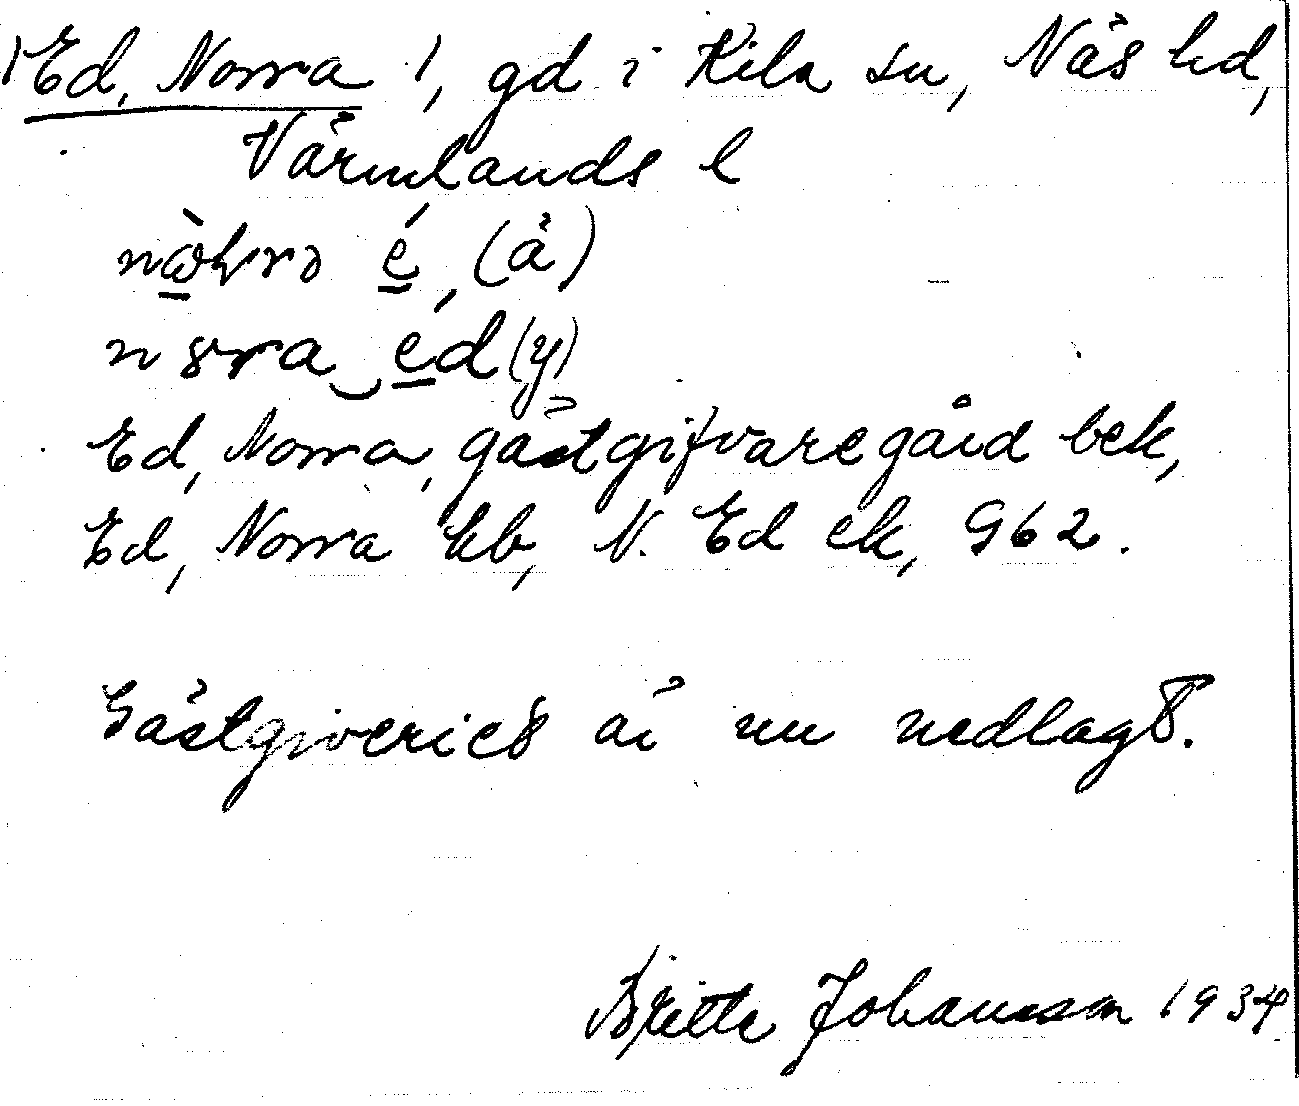 1 Ed, Norra 1, gd i Kila sn, Näs hd,
Värmlands l
é, (ä)
éd (y)
Ed, Norra, gästgifvaregård bek,
Ed, Norra hb, N. Ed ek, 962.
Gästgiveriet är nu nedlagt.
Britta Johansson 1934